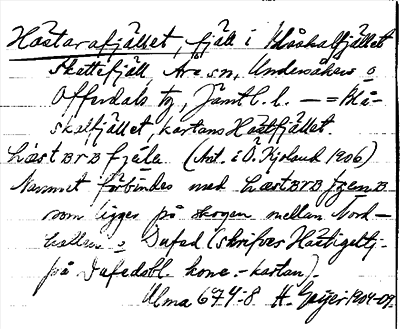 Hästarafjället, fjäll i Blåskalfjället
Skettefjäll, Åre sn, Undersåkers o
Offerdals tg, Jämtl. l. — = Blå-
skalfjället, kartans Hästfjället.
hæstBrB fjæla (Ant. i Ö. Kjoland 1906)
Namnet förbindes med hæstBrB
som ligger på skogen mellan Nord-
hallen o Dufed (skrifves
på Dufedsbl. konc.-kartan).
Ulma 674:8 H. Geijer 1904-09.